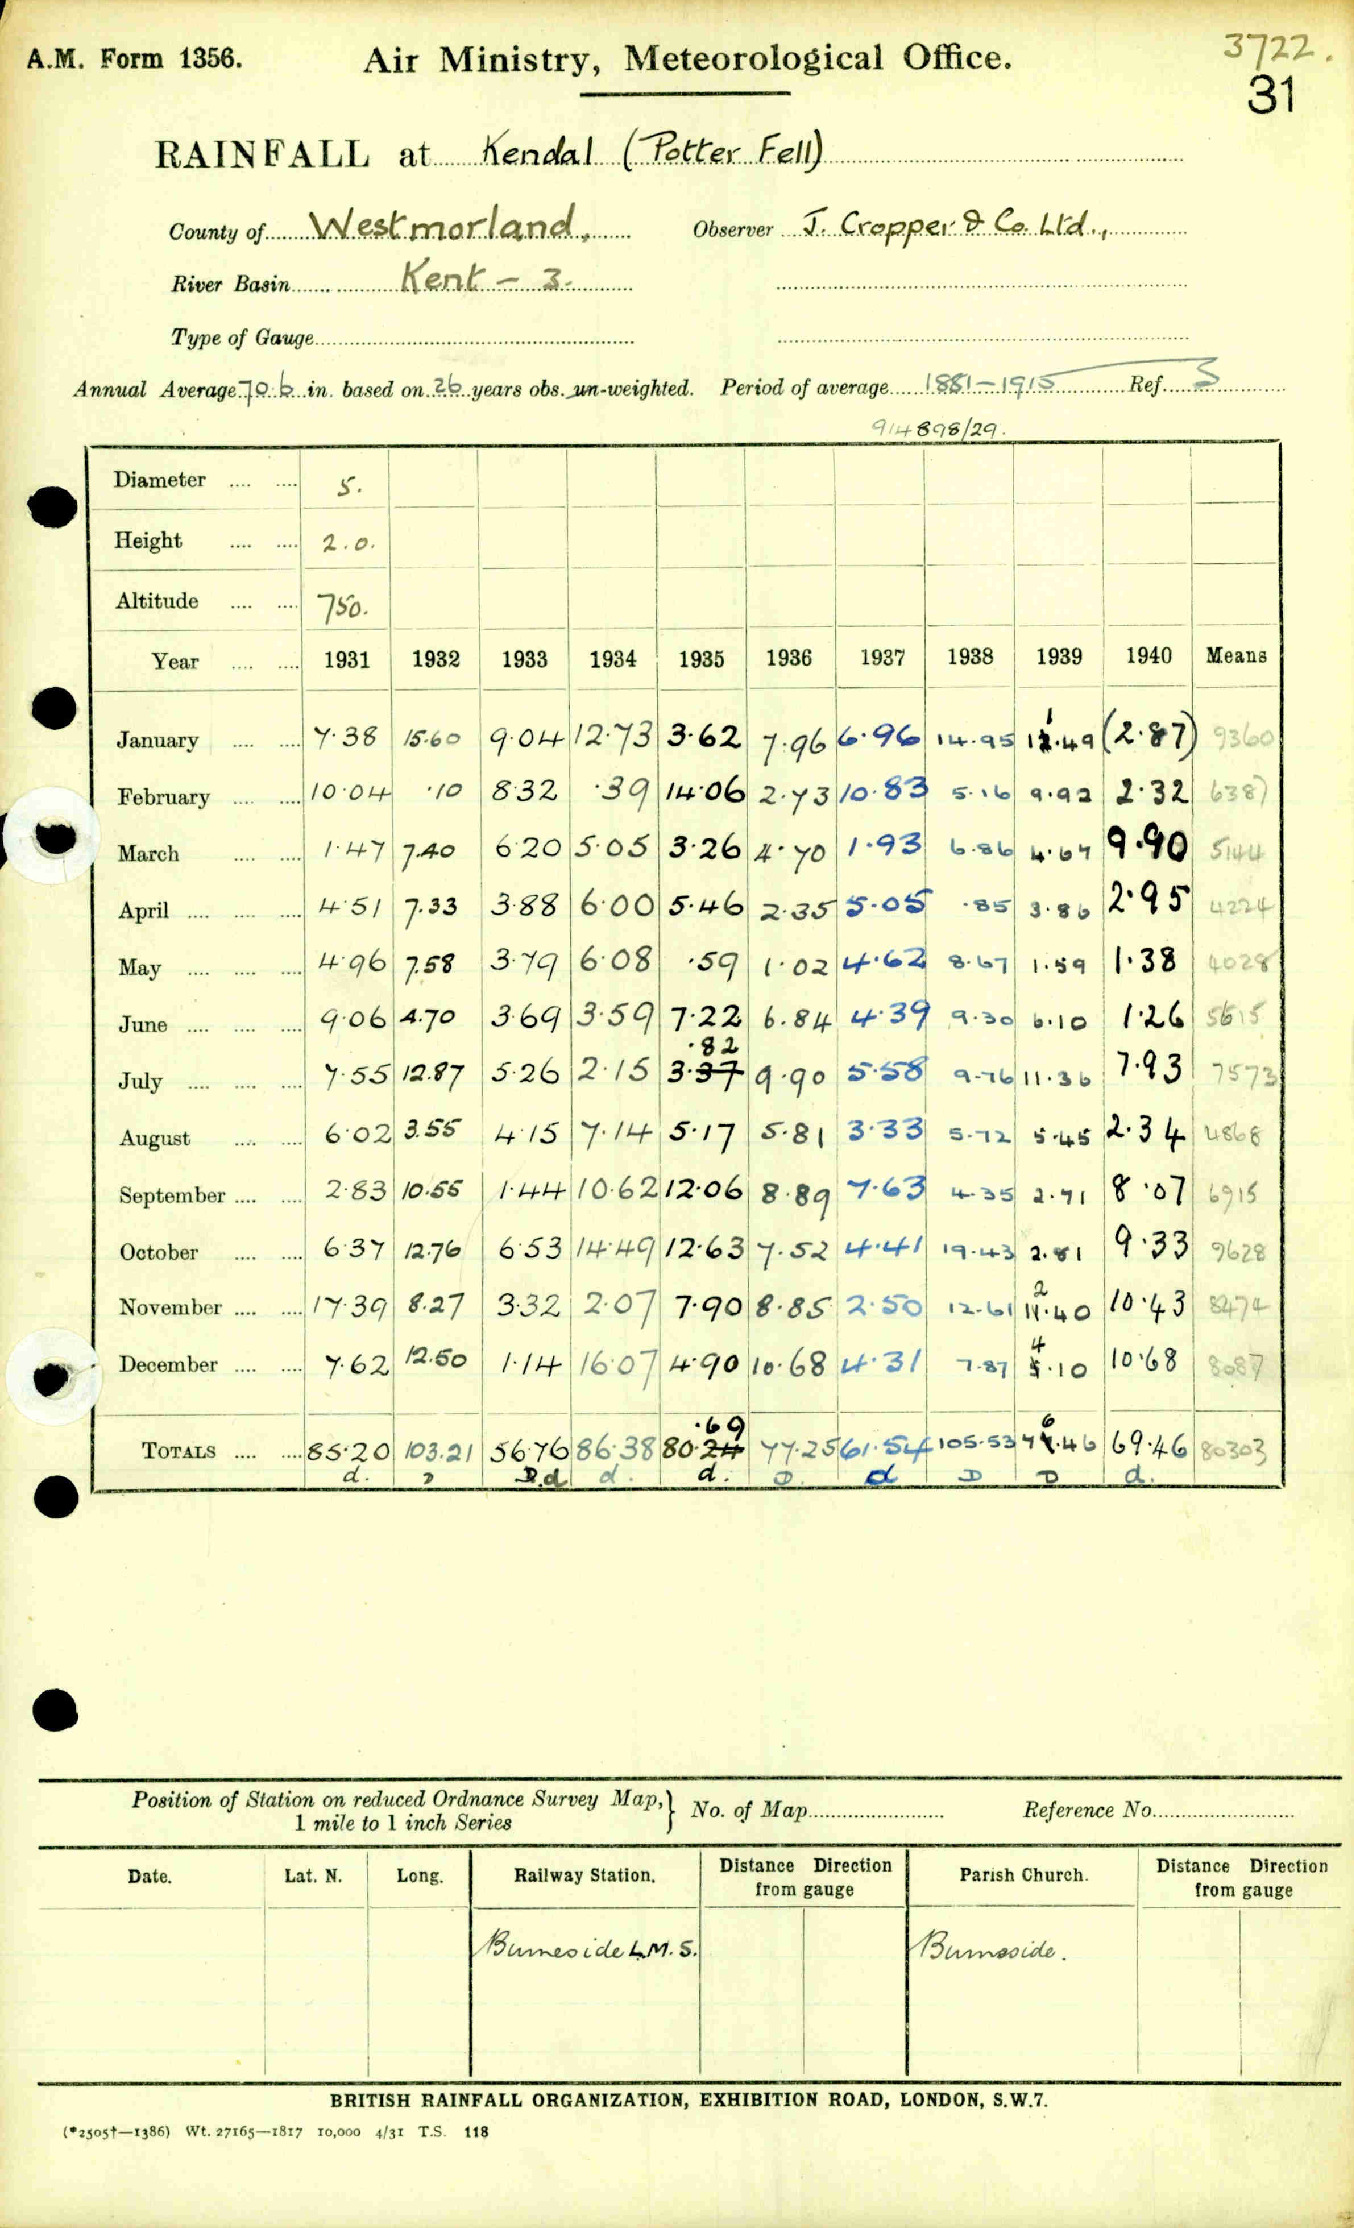 A.M. Form 1356. Air Ministry, Meteorological Office. 3722.
31
RAINFALL at Kendal (Potter Fell)
County of Westmorland, Observer J. Cropper & Co. Ltd.,
River Basin Kent - 3.
Type of Gauge
Annual Average 70.6 in. based on 26 years obs. un-weighted. Period of average 1881-1915 Ref. 3
914898/29.
Diameter 5.
Height 2.0.
Altitude 750.
Year 1931 1932 1933 1934 1935 1936 1937 1938 1939 1940 Means
January 7.38 15.60 9.04 12.73 3.62 7.96 6.96 14.95 11.49 (2.87) 9360
February 10.04 .10 8.32 .39 14.06 2.73 10.83 5.16 9.92 2.32 6387
March 1.47 7.40 6.20 5.05 3.26 4.70 1.93 6.86 4.67 9.90 5144
April 4.51 7.33 3.88 6.00 5.46 2.35 5.05 .85 3.86 2.95 4224
May 4.96 7.58 3.79 6.08 .59 1.02 4.62 8.67 1.59 1.38 4028
June 9.06 4.70 3.69 3.59 7.22 6.84 4.39 9.30 6.10 1.26 5615
.82
July 7.55 12.87 5.26 2.15 3.37 9.90 5.58 9.76 11.36 7.93 7573
August 6.02 3.55 4.15 7.14 5.17 5.81 3.33 5.72 5.45 2.34 4868
September 2.83 10.55 1.44 10.62 12.06 8.89 7.63 4.35 2.71 8.07 6915
October 6.37 12.76 6.53 14.49 12.63 7.52 4.41 19.43 2.81 9.33 9628
November 17.39 8.27 3.32 2.07 7.90 8.85 2.50 12.61 12.40 10.43 8474
December 7.62 12.50 1.14 16.07 4.90 10.68 4.31 7.87 4.10 10.68 8087
.69
TOTALS 85.20 103.21 56.76 86.38 80.24 77.25 61.54 105.53 76.46 69.46 80303
d. D D.d d. d. D. d D D d.
Position of Station on reduced Ordnance Survey Map, No. of Map Reference No.
1 mile to 1 inch Series
Date. Lat. N. Long. Railway Station. Distance Direction from gauge Parish Church. Distance Direction from gauge
Burneside L.M.S. Burneside.
BRITISH RAINFALL ORGANIZATION, EXHIBITION ROAD, LONDON, S.W.7.
(*2505†—1386) Wt. 27165—1817 10,000 4/31 T.S. 118